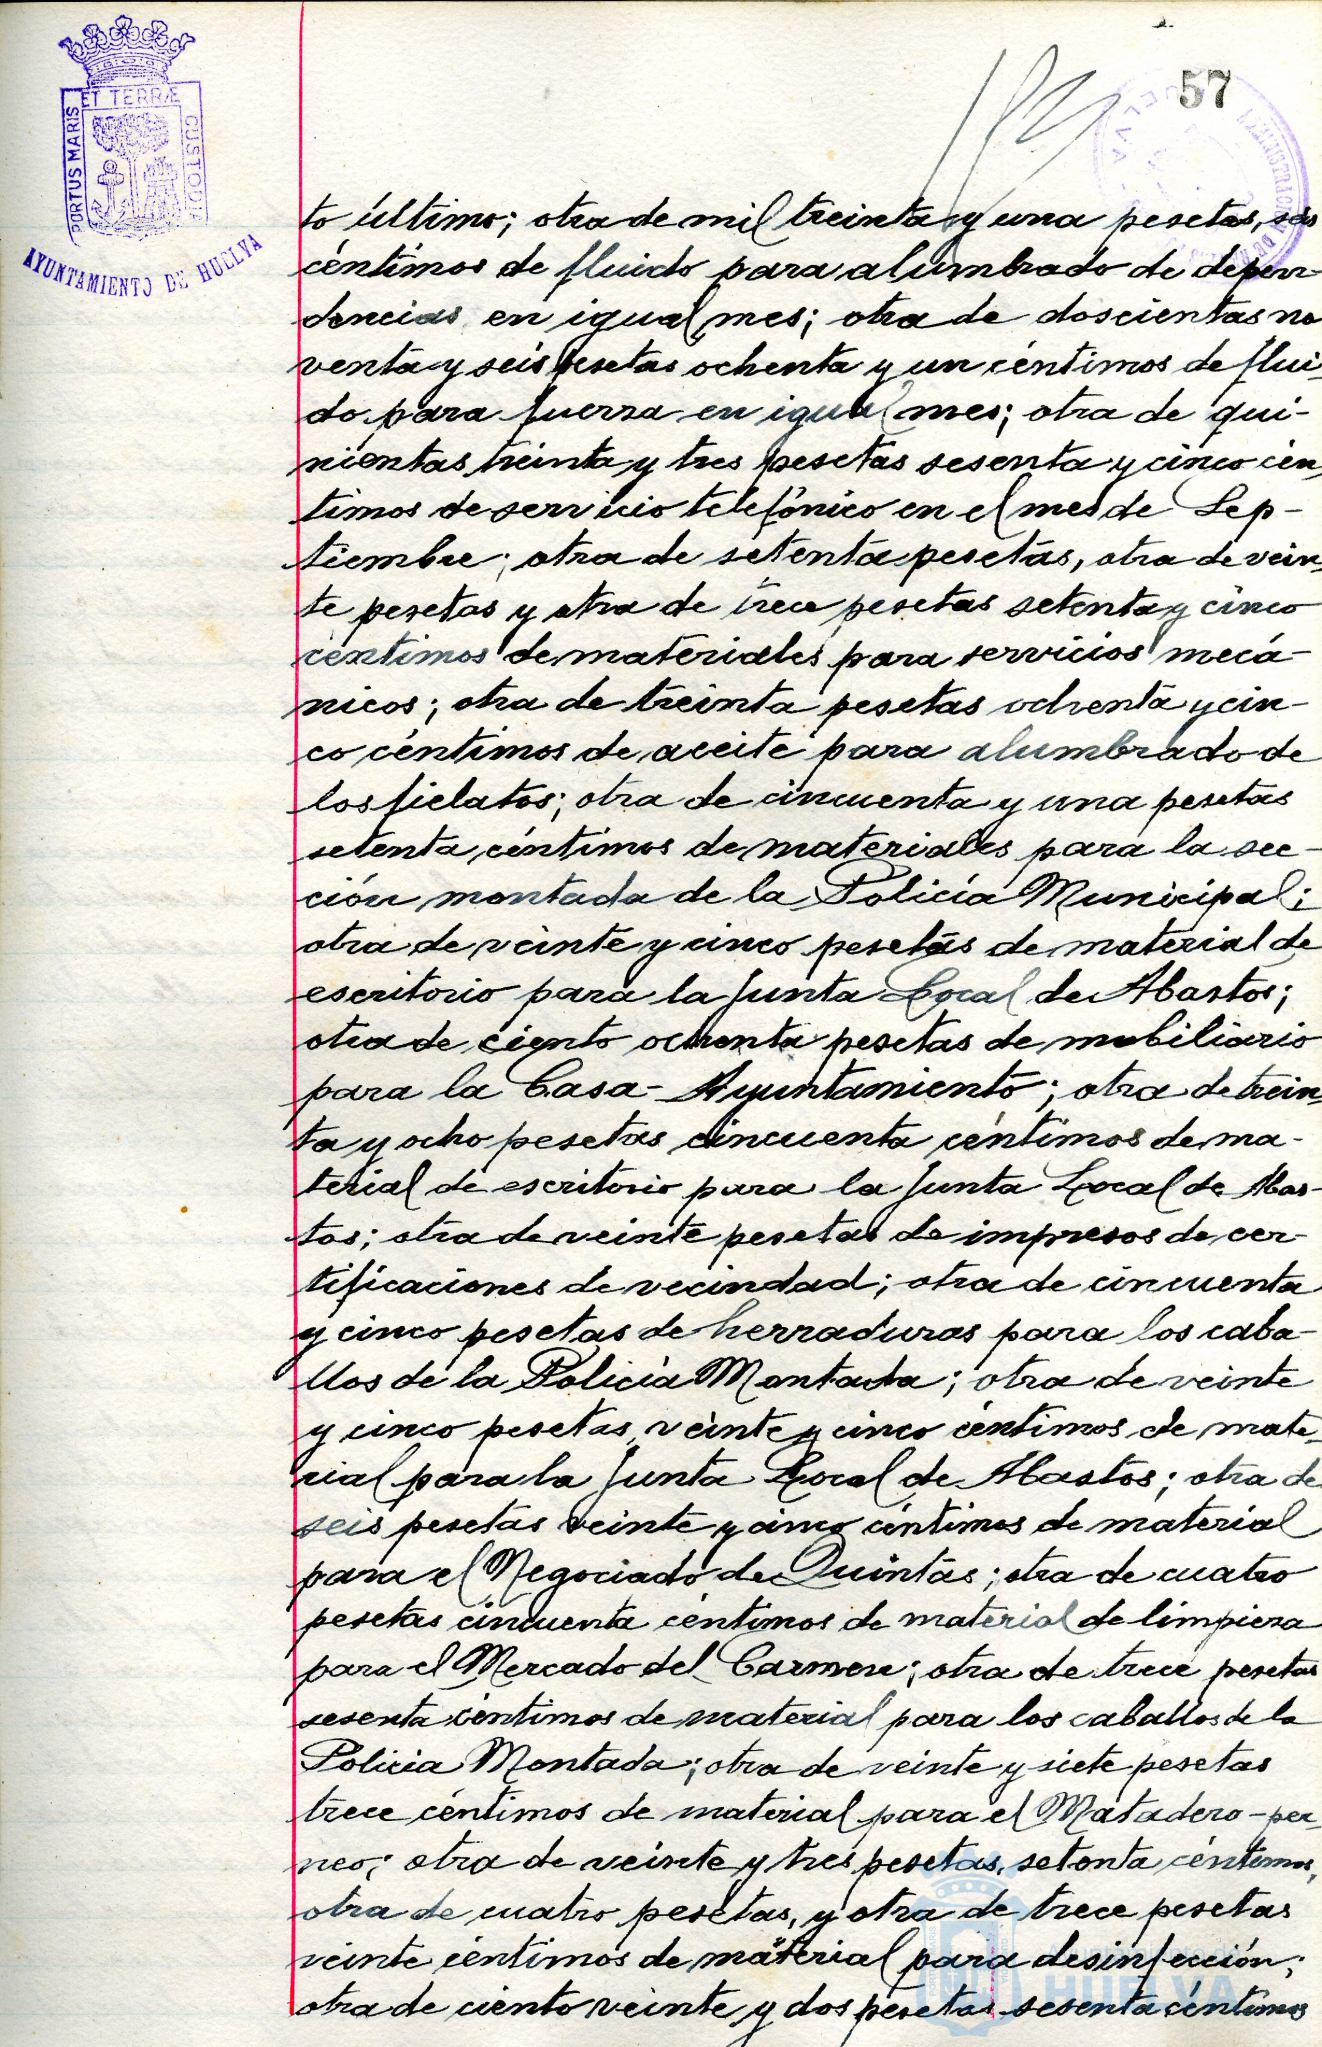 57
ET TERRÆ
PORTUS MARIS
CUSTODIA
AYUNTAMIENTO DE HUELVA
to último; otra de mil treinta y una pesetas, seis
céntimos de fluido para alumbrado de depen-
dencias en igual mes; otra de doscientas no
venta y seis pesetas ochenta y un céntimos de flui-
do para fuerza en igual mes; otra de qui-
nientas treinta y tres pesetas sesenta y cinco cén-
timos de servicio telefónico en el mes de Sep-
tiembre; otra de setenta pesetas, otra de vein-
te pesetas y otra de trece pesetas setenta y cinco
céntimos de materiales para servicios mecá-
nicos; otra de treinta pesetas ochenta y cin-
co céntimos de aceite para alumbrado de
los fielatos; otra de cincuenta y una pesetas
setenta céntimos de materiales para la sec-
ción montada de la Policía Municipal;
otra de veinte y cinco pesetas de material de
escritorio para la Junta Local de Abastos;
otra de ciento ochenta pesetas de mobiliario
para la Casa-Ayuntamiento; otra de trein-
ta y ocho pesetas cincuenta céntimos de ma-
terial de escritorio para la Junta Local de Abas-
tos; otra de veinte pesetas de impresos de cer-
tificaciones de vecindad; otra de cincuenta
y cinco pesetas de herraduras para los caba-
llos de la Policía Montada; otra de veinte
y cinco pesetas, veinte y cinco céntimos de mate-
rial para la Junta Local de Abastos; otra de
seis pesetas veinte y cinco céntimos de material
para el Negociado de Quintas; otra de cuatro
pesetas cincuenta céntimos de material de limpieza
para el Mercado del Carmen; otra de trece pesetas
sesenta céntimos de material para los caballos de la
Policía Montada; otra de veinte y siete pesetas
trece céntimos de material para el Matadero-per-
neo; otra de veinte y tres pesetas, setenta céntimos,
otra de cuatro pesetas, y otra de trece pesetas
veinte céntimos de material para desinfección;
otra de ciento veinte y dos pesetas sesenta céntimos
HUELVA